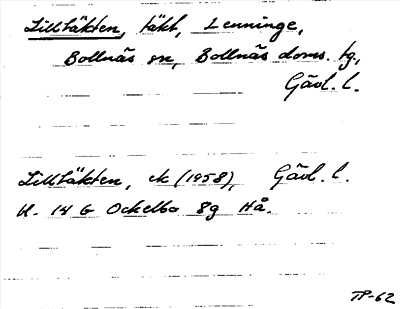 Lilltäkten, täkt, Lenninge,
Bollnäs sn, Bollnäs doms. tg.,
Gävl. l.
Lilltäkten, ek (1958), Gävl. l.
K. 14 G Ockelbo 8g Hå.
TP-62